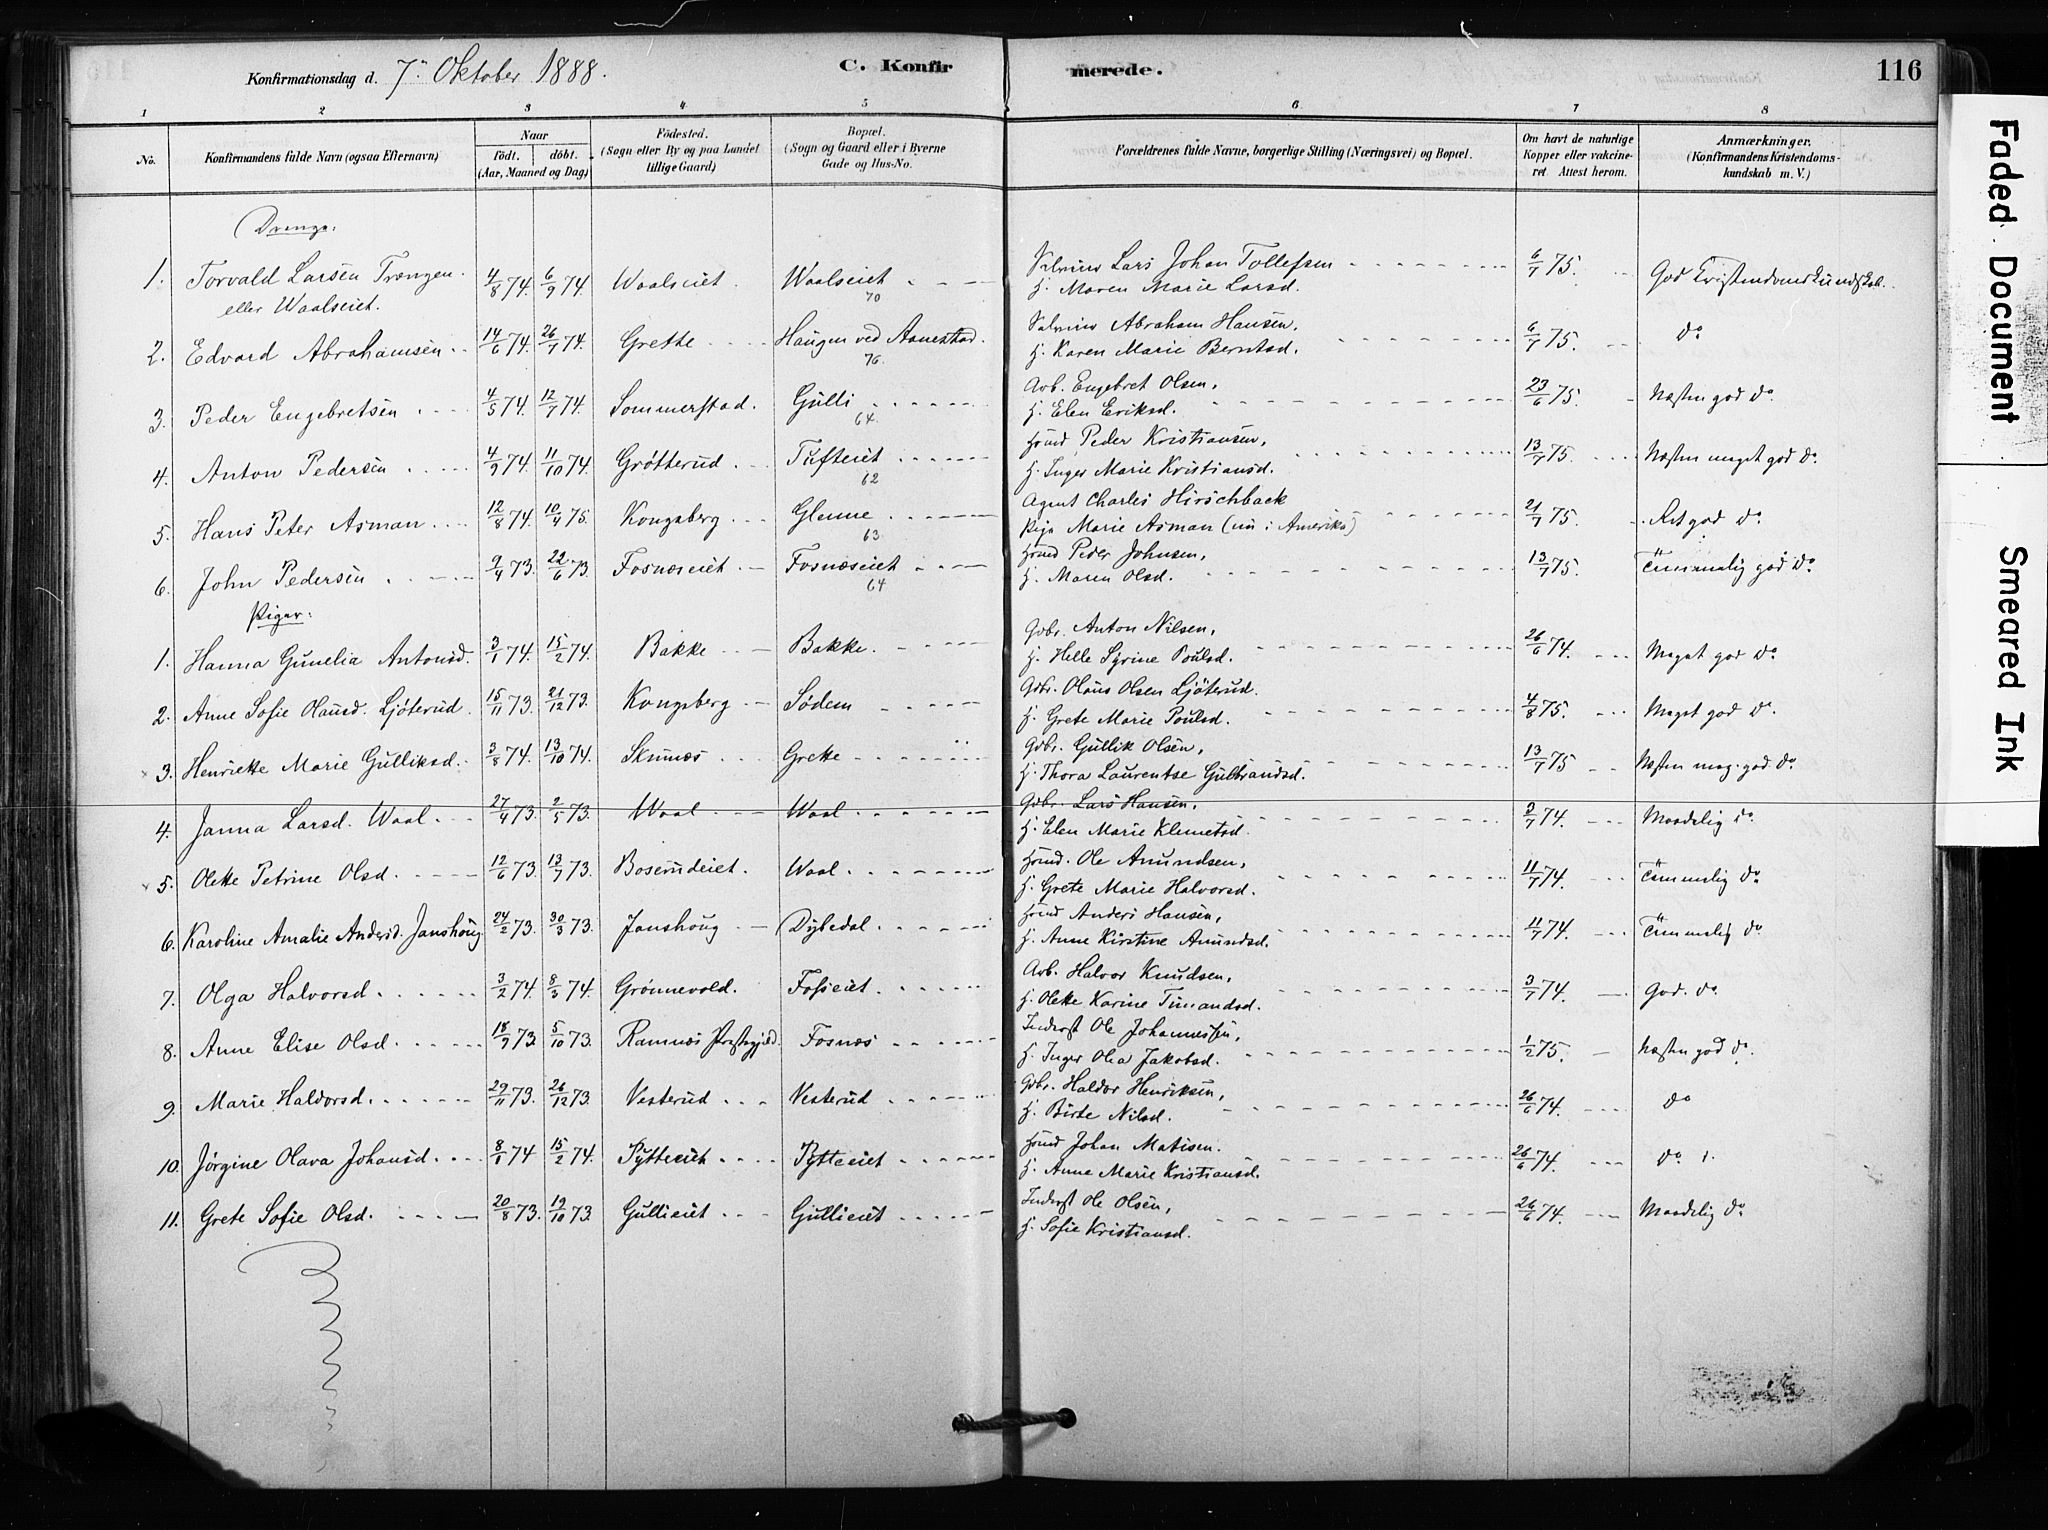 Konfirmationsdag d. 7de Oktober 1888.
C. Konfir merede. 116
1 2 3 4 5 6 7 8
No. Konfirmandens fulde Navn (ogsaa Efternavn) Naar födt. döbt. (Aar, Maaned og Dag) Födested. (Sogn eller By og paa Landet tillige Gaard) Bopæl. (Sogn og Gaard eller i Byerne Gade og Hus-No. Forældrenes fulde Navne, borgerlige Stilling (Næringsvei) og Bopæl. Om havt de naturlige Kopper eller vakcineret. Attest herom. Anmærkninger. (Konfirmandens Kristendomskundskab m. V.)
Drenge:
1. Torvald Larsen Trængen 4/8 74. 6/9 74. Waalseiet Waalseiet Lars Johan Tollefsen 6/7 75. God Kristendomskundskab.
eller Waalseiet. 70 h. Maren Marie Larsd.
2. Edvard Abrahamsen 14/6 74. 26/7 74. Grette Haugen ved Aanestad. 76. Abraham Hansen, 6/7 75. do
h. Karen Marie Berntsd.
3. Peder Engebretsen 4/5 74. 12/7 74. Sommerstad. Gulli 64. Arb. Engebret Olsen, 23/6 75. Næsten god do
h. Elen Eriksd.
4. Anton Pedersen 4/9 74. 11/10 74. Grøtterud Tufteiet 62 Hmd Peder Kristiansen, 13/7 75. Næsten meget god do
h. Inger Marie Kristiansd.
5. Hans Peter Asman 12/8 74. 10/4 75. Kongsberg Glenne 63 Agent Charles Hirschback 21/7 75. Ret god do
Pige Marie Asman (nu i Amerika)
6. John Pedersen 9/4 73. 22/6 73. Fosnæseiet Fosnæseiet 64 Hmd Peder Johnsen, 13/7 75. Temmelig god do
h. Maren Olsd.
Piger:
1. Hanna Gunelia Antonsd. 3/1 74. 15/2 74. Bakke Bakke. Gdbr. Anton Nilsen, 26/6 74. Meget god do
h. Helle Syrine Poulsd.
2. Anne Sofie Olausd. Ljøterud. 15/11 73. 21/12 73. Kongsberg Sødem Gdbr. Olaus Olsen Ljøterud. 4/8 75. Meget god do
h. Grete Marie Poulsd.
3. Henriette Marie Gulliksd. 3/8 74. 13/10 74. Skinnes Grette Gdbr. Gullik Olsen, 13/7 75 Næsten meg. god do
h. Thora Laurentse Gulbrandsd.
4. Janna Larsd. Waal. 27/4 73. 2/5 73. Waal Waal Gdbr. Lars Hansen, 3/7 74. Maadelig do
h. Elen Marie Klemetsd.
5. Olette Petrine Olsd. 12/6 73. 13/7 73. Boserudeiet. Waal Hmd. Ole Amundsen, 11/7 74. Temmelig do
h. Grete Marie Halvorsd.
6. Karoline Amalie Andersd. Janshoug 24/2 73. 30/3 73. Janshoug Dybedal Hmd Anders Hansen, 11/7 74. Temmelig do
h. Anne Kirstine Amundsd.
7. Olga Halvorsd. 3/2 74. 8/3 74. Grønnevold. Fosseiet Arb. Halvor Knudsen, 3/7 74. God. do
h. Olette Karine Timandsd.
8. Anne Elise Olsd. 18/9 73. 5/10 73. Ramnæs Præstegjæld. Fosnæs Inderst Ole Johannessen, 1/2 75. Næsten god do
h. Inger Olea Jakobsd.
9. Marie Haldorsd. 29/11 73. 26/12 73. Vesterud Vesterud Gdbr. Haldor Henriksen, 26/6 74. do
h. Birte Nilsd.
10. Jørgine Olava Johansd. 8/1 74 15/2 74. Pytteeiet Pytteeiet Hmd Johan Matisen. 26/6 74. do
h. Anne Marie Kristiansd.
11. Grete Sofie Olsd. 20/8 73. 19/10 73. Gullieiet Gullieiet Inderst Ole Olsen, 26/6 74. Maadelig do
h. Sofie Kristiansd.
Faded Document
Smeared Ink